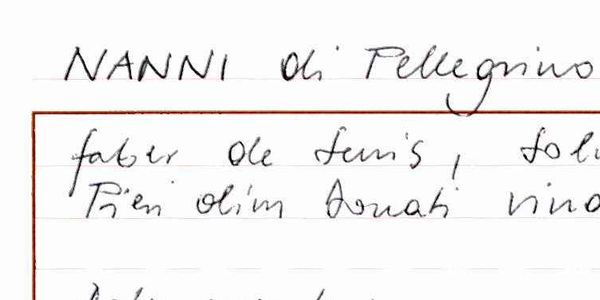 NANNI di Pellegrino
faber de Senis, sol
Pieri olim Donati